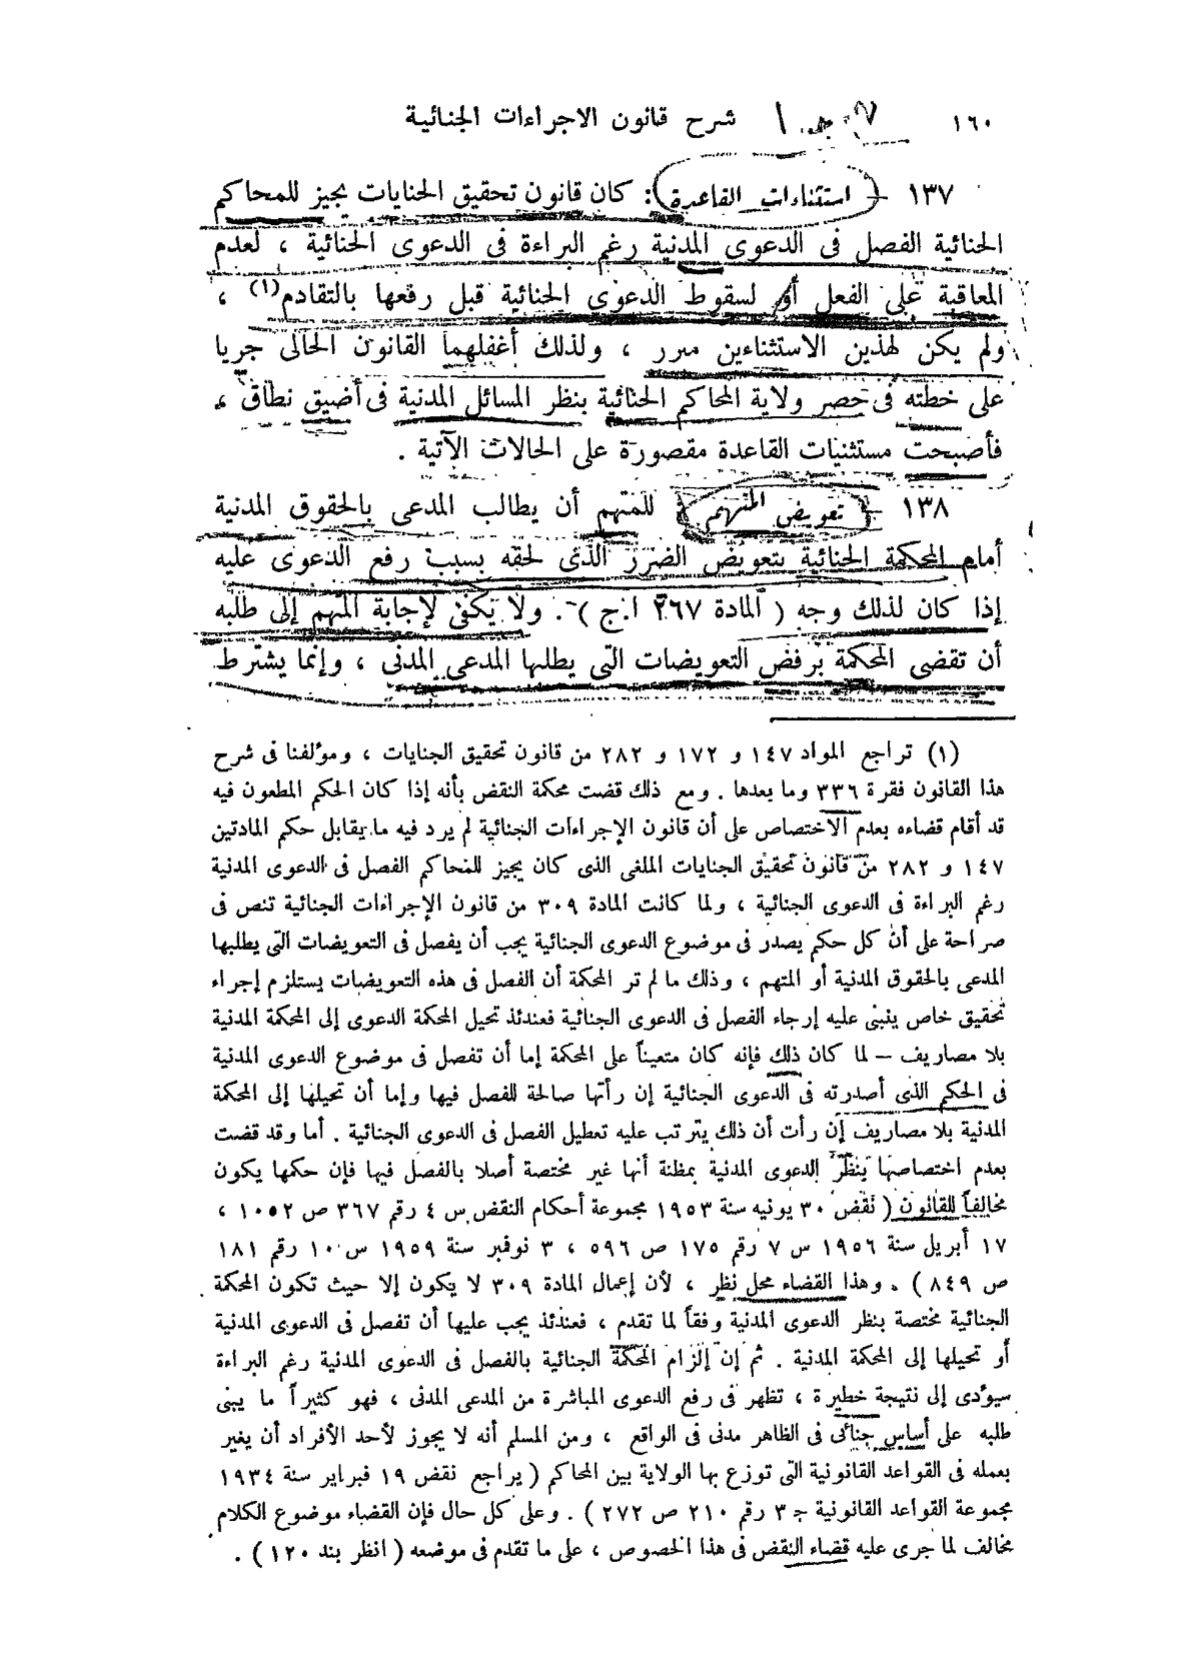 ١٦٠ شرح قانون الاجراءات الجنائية
١٣٧ – استثناءات القاعدة : كان قانون تحقيق الجنايات يجيز للمحاكم
الجنائية الفصل فى الدعوى المدنية رغم البراءة فى الدعوى الجنائية ، لعدم
المعاقبة على الفعل أو لسقوط الدعوى الجنائية قبل رفعها بالتقادم(١) ،
ولم يكن لهذين الاستثناءين مبرر ، ولذلك أغفلهما القانون الحالى جريا
على خطته فى حصر ولاية المحاكم الجنائية بنظر المسائل المدنية فى أضيق نطاق ،
فأصبحت مستثنيات القاعدة مقصورة على الحالات الآتية .
١٣٨ – تعويض المتهم : للمتهم أن يطالب المدعى بالحقوق المدنية
أمام المحكمة الجنائية بتعويض الضرر الذى لحقه بسبب رفع الدعوى عليه
إذا كان لذلك وجه ( المادة ٢٦٧ ا.ج ) . ولا يكفى لإجابة المتهم إلى طلبه
أن تقضى المحكمة برفض التعويضات التى يطلبها المدعى المدنى ، وإنما يشترط
(١) تراجع المواد ١٤٧ و ١٧٢ و ٢٨٢ من قانون تحقيق الجنايات ، ومؤلفنا فى شرح
هذا القانون فقرة ٣٣٦ وما بعدها . ومع ذلك قضت محكمة النقض بأنه إذا كان الحكم المطعون فيه
قد أقام قضاءه بعدم الاختصاص على أن قانون الإجراءات الجنائية لم يرد فيه ما يقابل حكم المادتين
١٤٧ و ٢٨٢ من قانون تحقيق الجنايات الملغى الذى كان يجيز للمحاكم الفصل فى الدعوى المدنية
رغم البراءة فى الدعوى الجنائية ، ولما كانت المادة ٣٠٩ من قانون الإجراءات الجنائية تنص فى
صراحة على أن كل حكم يصدر فى موضوع الدعوى الجنائية يجب أن يفصل فى التعويضات التى يطلبها
المدعى بالحقوق المدنية أو المتهم ، وذلك ما لم تر المحكمة أن الفصل فى هذه التعويضات يستلزم إجراء
تحقيق خاص ينبنى عليه إرجاء الفصل فى الدعوى الجنائية فعندئذ تحيل المحكمة الدعوى إلى المحكمة المدنية
بلا مصاريف – لما كان ذلك فإنه كان متعيناً على المحكمة إما أن تفصل فى موضوع الدعوى المدنية
فى الحكم الذى أصدرته فى الدعوى الجنائية إن رأتها صالحة للفصل فيها وإما أن تحيلها إلى المحكمة
المدنية بلا مصاريف إن رأت أن ذلك يترتب عليه تعطيل الفصل فى الدعوى الجنائية . أما وقد قضت
بعدم اختصاصها بنظر الدعوى المدنية بمظنة أنها غير مختصة أصلا بالفصل فيها فإن حكمها يكون
مخالفاً للقانون ( نقض ٣٠ يونيه سنة ١٩٥٣ مجموعة أحكام النقض س ٤ رقم ٣٦٧ ص ١٠٥٢ ،
١٧ أبريل سنة ١٩٥٦ س ٧ رقم ١٧٥ ص ٥٩٦ ، ٣ نوفمبر سنة ١٩٥٩ س ١٠ رقم ١٨١
ص ٨٤٩ ) . وهذا القضاء محل نظر ، لأن إعمال المادة ٣٠٩ لا يكون إلا حيث تكون المحكمة
الجنائية مختصة بنظر الدعوى المدنية وفقاً لما تقدم ، فعندئذ يجب عليها أن تفصل فى الدعوى المدنية
أو تحيلها إلى المحكمة المدنية . ثم إن إلزام المحكمة الجنائية بالفصل فى الدعوى المدنية رغم البراءة
سيؤدى إلى نتيجة خطيرة ، تظهر فى رفع الدعوى المباشرة من المدعى المدنى ، فهو كثيراً ما يبنى
طلبه على أساس جنائى فى الظاهر مدنى فى الواقع ، ومن المسلم أنه لا يجوز لأحد الأفراد أن يغير
بعمله فى القواعد القانونية التى توزع بها الولاية بين المحاكم ( يراجع نقض ١٩ فبراير سنة ١٩٣٤
مجموعة القواعد القانونية ج ٣ رقم ٢١٠ ص ٢٧٢ ) . وعلى كل حال فإن القضاء موضوع الكلام
مخالف لما جرى عليه قضاء النقض فى هذا الخصوص ، على ما تقدم فى موضعه ( انظر بند ١٢٠ ) .